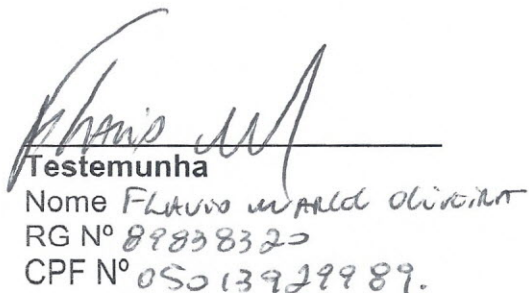 Flavio M
Testemunha
Nome Flavio Marcel Oliveira
RG Nº 89838320
CPF Nº 05013929989.